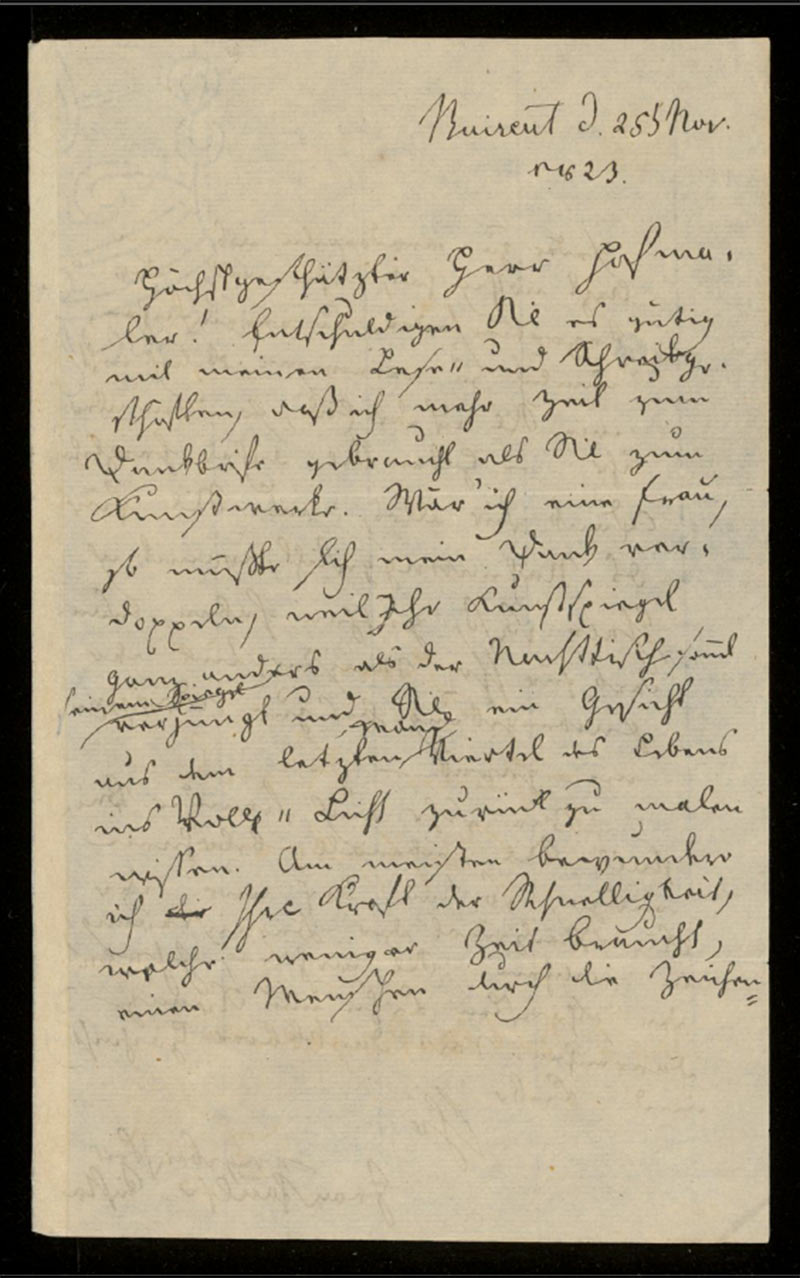 Baireut d. 25t Nov.
1823.
Höchstgeschätzter Herr Hofma-
ler! Entschuldigen Sie es gütig
mit meinen Lese- und Schreibge-
schäften, daß ich mehr Zeit zum
Dankbriefe gebraucht als Sie zum
Kunstwerke. Wär' ich eine Frau,
so müßte sich mein Dank ver-
doppeln, weil Ihr Kunstspiegel
ganz anders als der Nachttisch samt
seinem Spiegel
verjüngt und Sie ein Gesicht
aus dem letzten Viertel des Lebens
ins Voll- Licht zurück zu malen
wissen. Am meisten bewundere
ich die Ihre Kraft der Schnelligkeit,
welche weniger Zeit braucht,
einen Menschen durch die Zeichen=